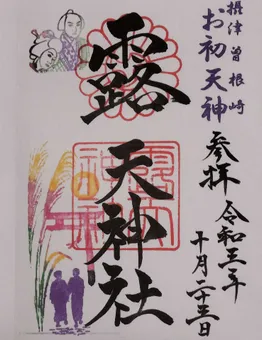 摂津曽根崎
お初天神
参拝
令和三年
十月二十三日
露天神社